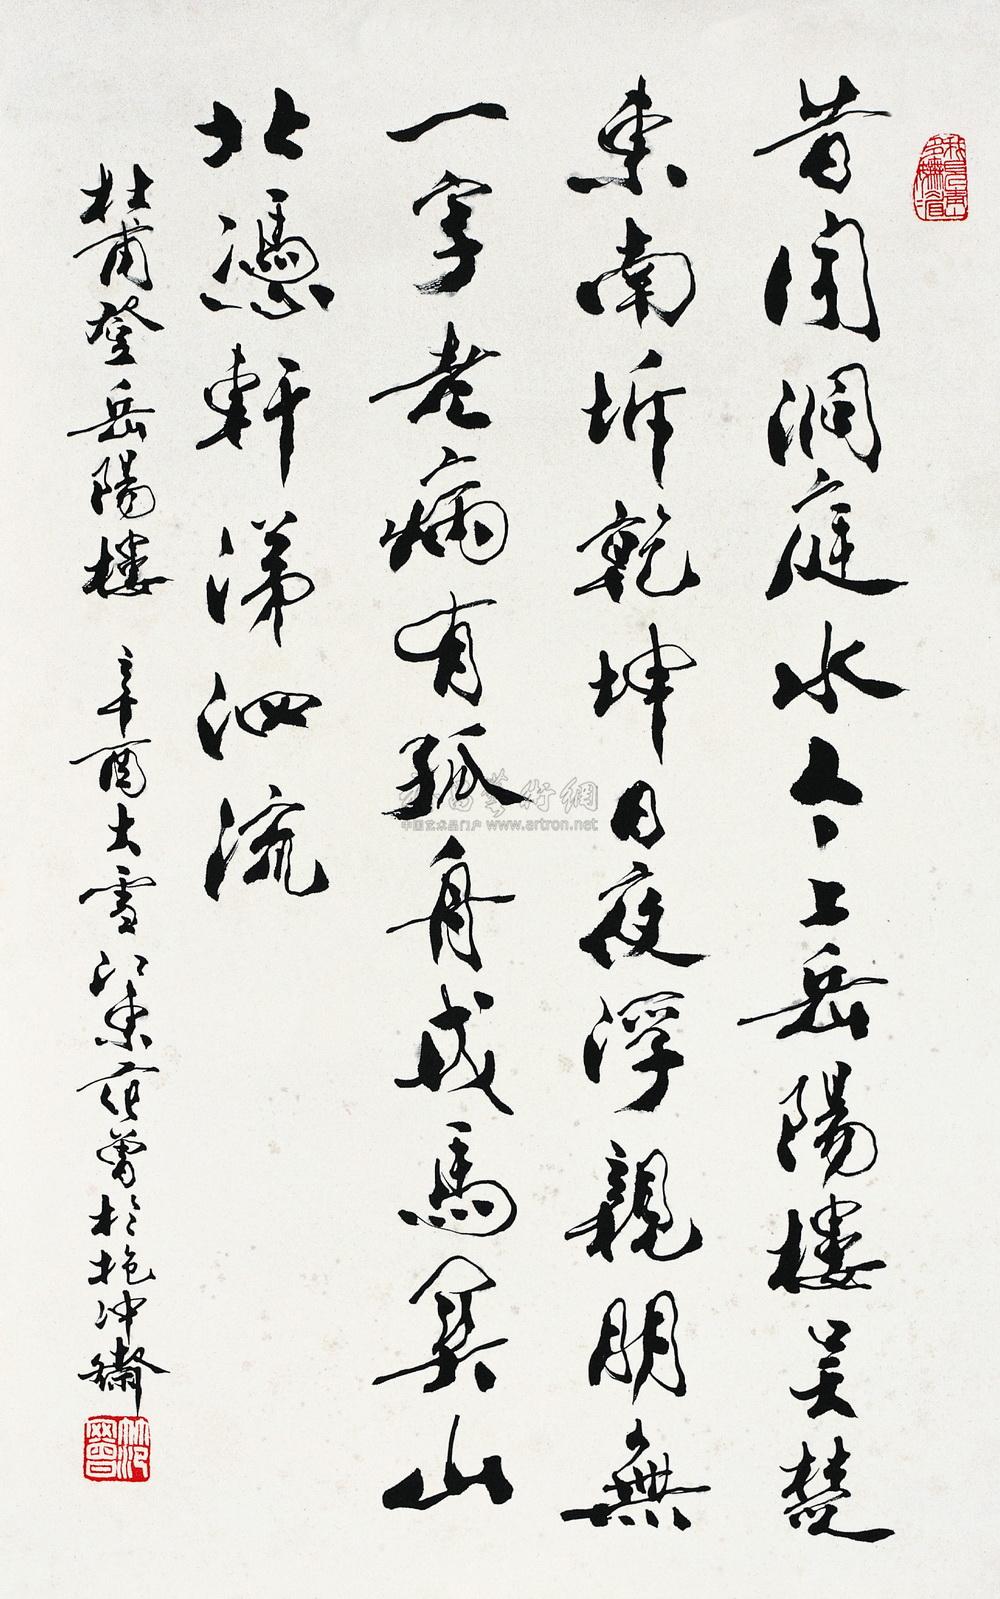 昔聞洞庭水今上岳陽樓吳楚
東南坼乾坤日夜浮親朋無
一字老病有孤舟戎馬關山
北憑軒涕泗流
杜甫登岳陽樓 辛酉大雪江東范曾於抱冲齋
范曾
藝術網
中国艺术品门户 www.artron.net